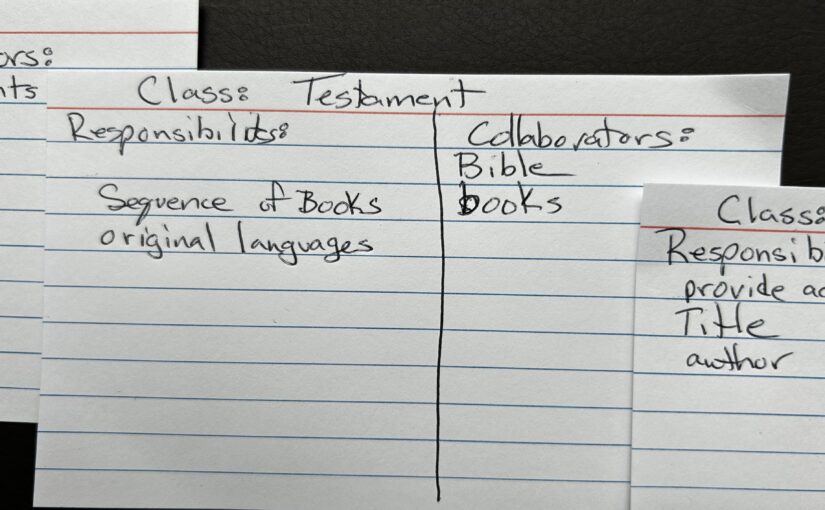 ors:
nts
Class: Testament
Responsibilities:
Sequence of Books
original languages
Collaborators:
Bible
books
Class:
Responsib
provide ac
Title
author